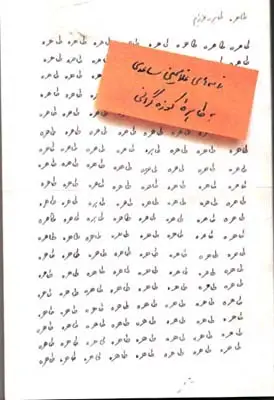 طاهره طاهره عزیزم
طاهره طاهره طاهره طاهره طاهره طاهره طاهره طاهره طاهره
نامه‌های غلامحسین ساعدی
به طاهرهٔ کوزه‌گرانی
طاهره طاهره طاهره طاهره طاهره طاهره طاهره طاهره طاهره
طاهره طاهره طاهره طاهره طاهره طاهره طاهره طاهره طاهره
طاهره طاهره طاهره طاهره طاهره طاهره طاهره طاهره طاهره
طاهره طاهره طاهره طاهره طاهره طاهره طاهره طاهره طاهره
طاهره طاهره طاهره طاهره طاهره طاهره طاهره طاهره طاهره
طاهره طاهره طاهره طاهره طاهره طاهره طاهره طاهره طاهره
طاهره طاهره طاهره طاهره طاهره طاهره طاهره طاهره طاهره
طاهره طاهره طاهره طاهره طاهره طاهره طاهره طاهره طاهره
طاهره طاهره طاهره طاهره طاهره طاهره طاهره طاهره طاهره
طاهره طاهره طاهره طاهره طاهره طاهره طاهره طاهره طاهره
طاهره طاهره طاهره طاهره طاهره طاهره طاهره طاهره طاهره
طاهره طاهره طاهره طاهره طاهره طاهره طاهره طاهره طاهره